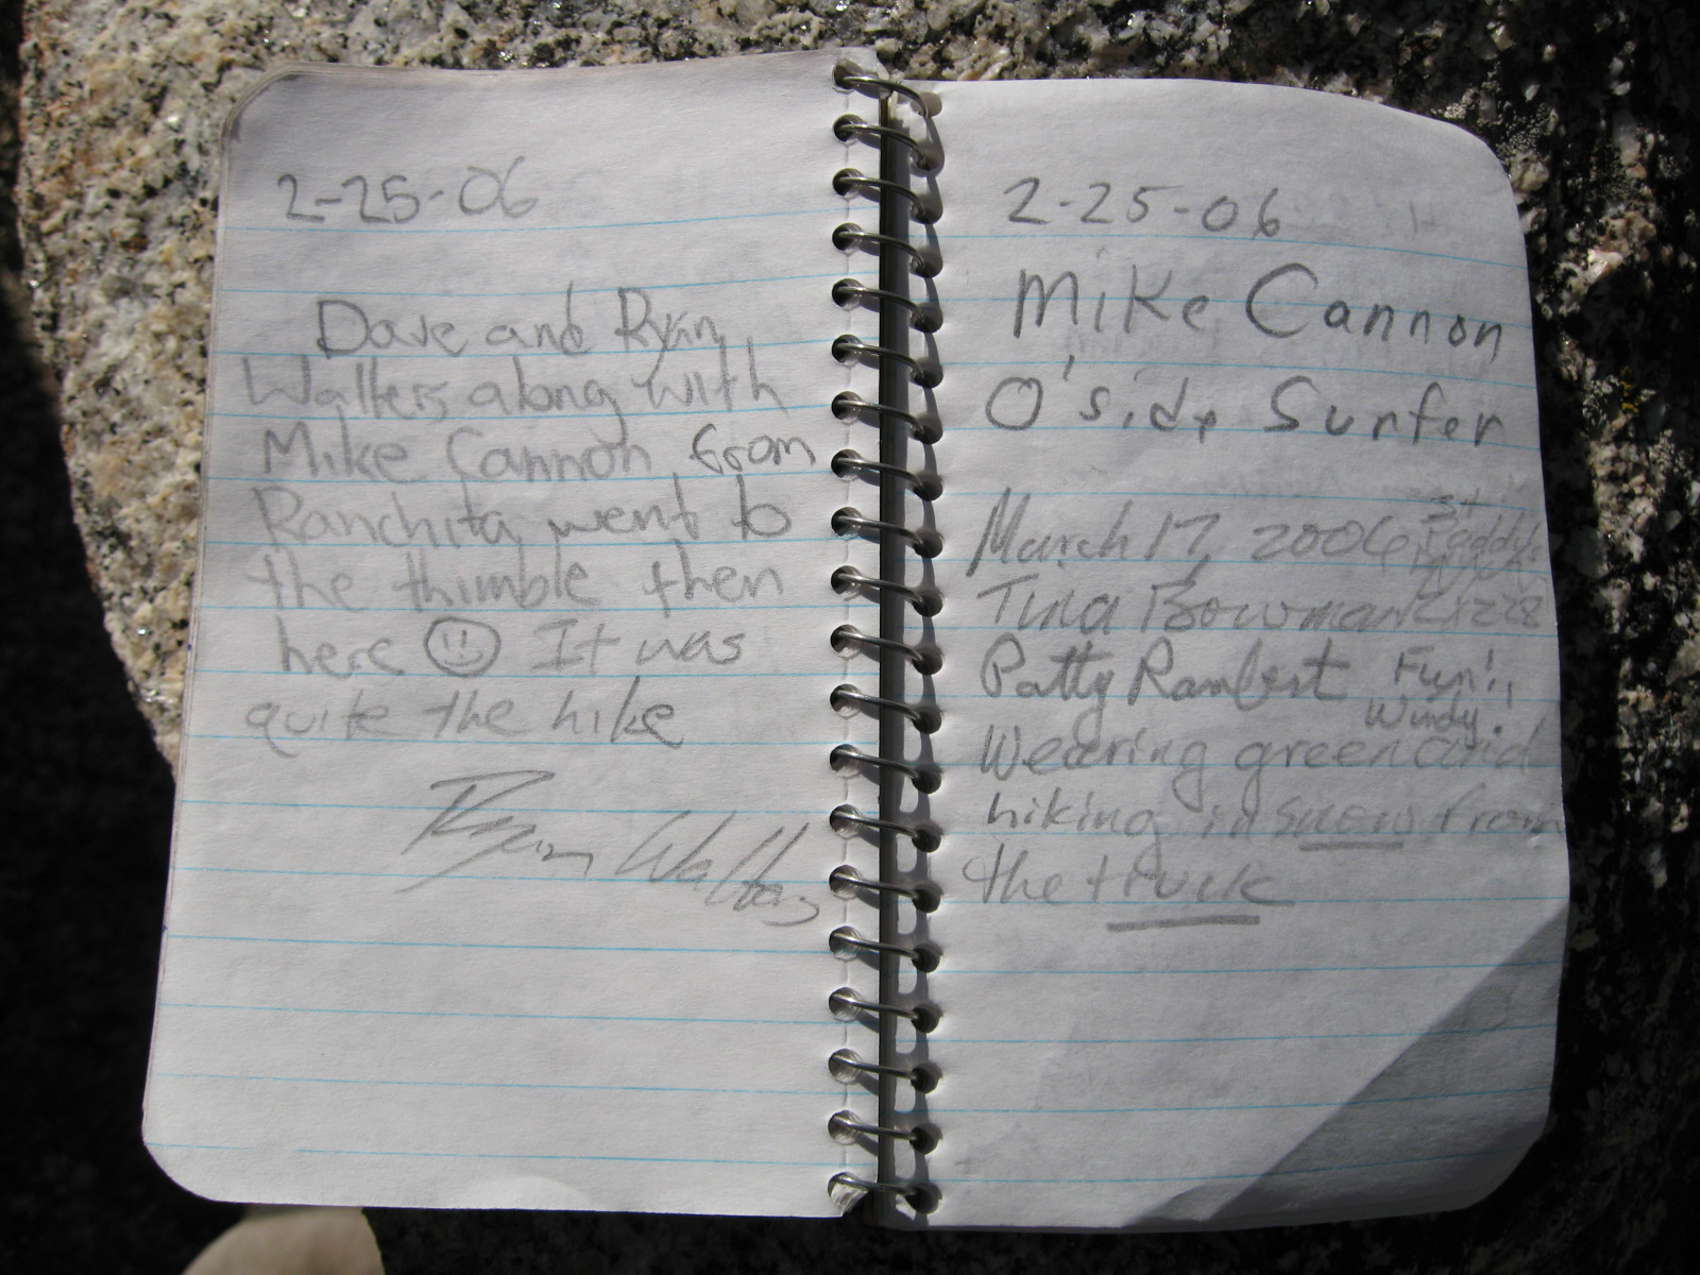 2-25-06
Dave and Ryan
Walters along with
Mike Cannon from
Ranchita went to
the thimble then
here It was
quite the hike
Ryan Walters
2-25-06
Mike Cannon
O'side Surfer
March 17, 2006 St Paddy's
Tina Bowman
Patty Rambert Fun!!
Windy!
Wearing green and
hiking in snow from
the truck